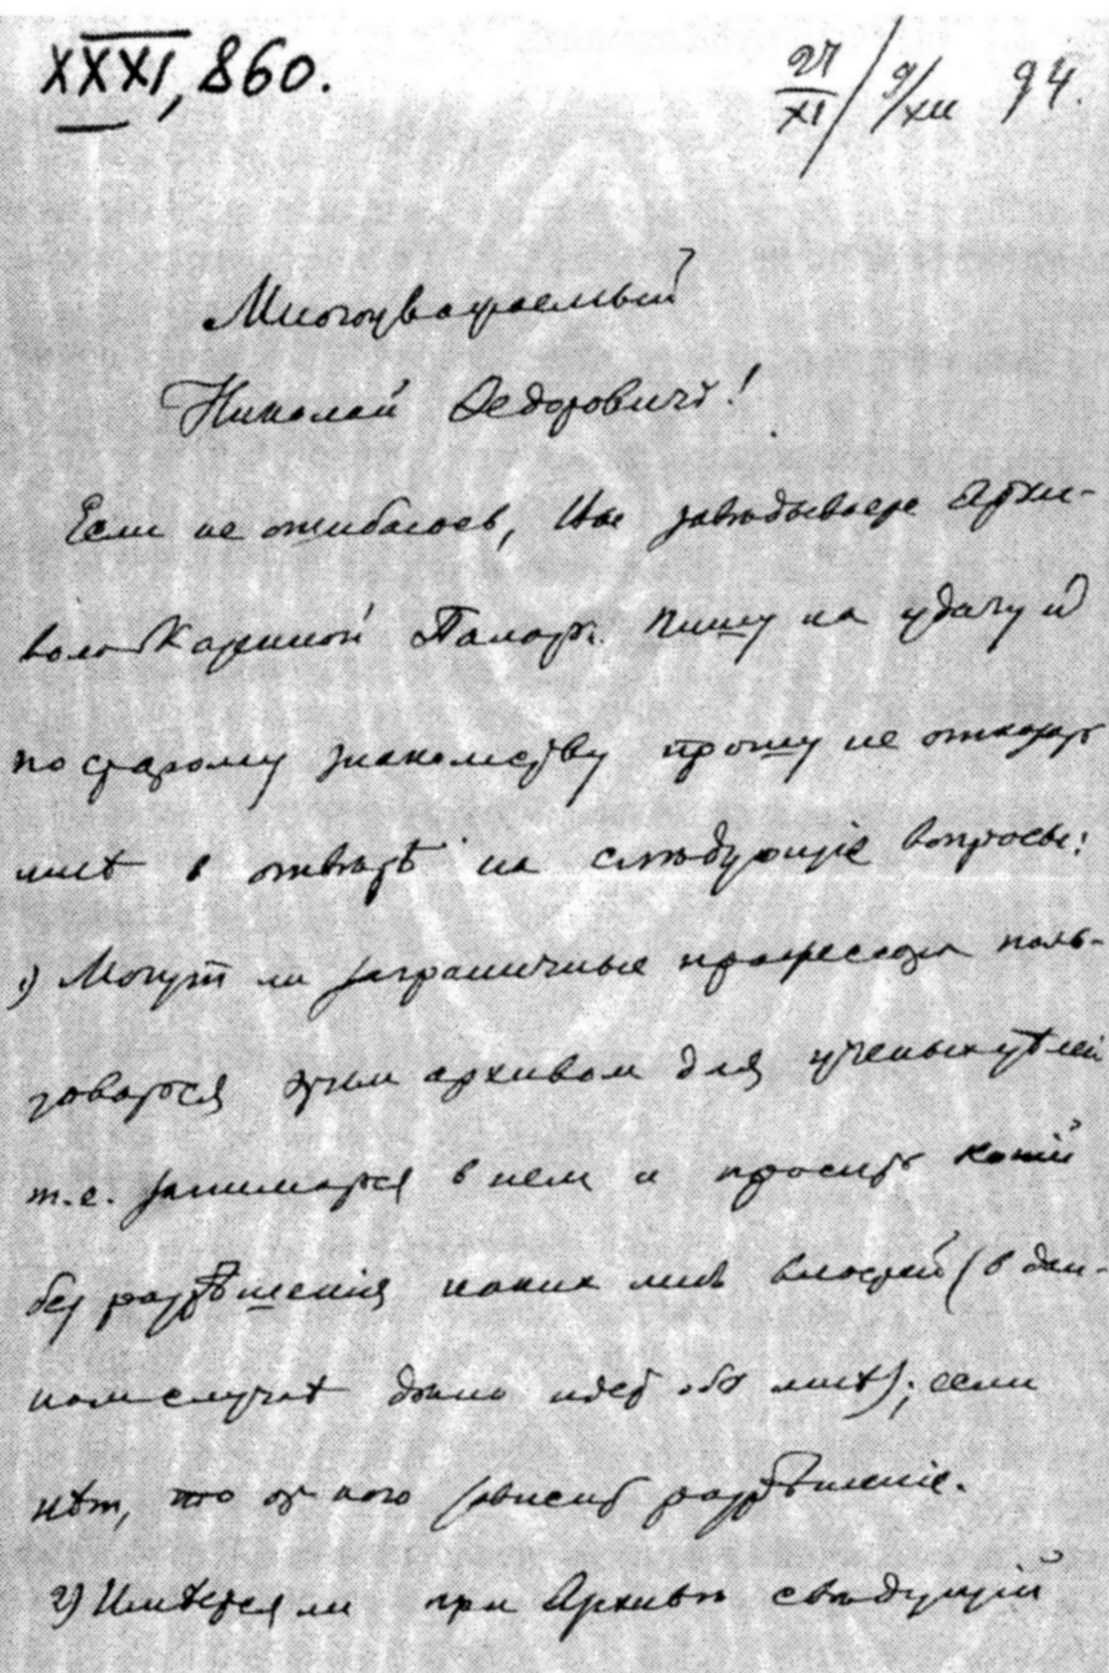 XXXI, 860.
27/XI / 9/XII 94.
Многоуважаемый
Николай Ѳедоровичъ!
Если не ошибаюсь, Вы завѣдываете Архи-
вом Казенной Палаты. Пишу на удачу и
по старому знакомству прошу не отказать
мнѣ в отвѣтѣ на слѣдующіе вопросы:
1) Могут ли заграничные профессора поль-
зоваться этим архивом для ученых цѣлей
т.е. заниматься в нем и просить копій
без разрѣшенія каких либо властей (в дан-
ном случаѣ дѣло идет обо мнѣ); если
нѣт, то от кого зависит разрѣшеніе.
2) Имѣется ли при Архивѣ свѣдущій